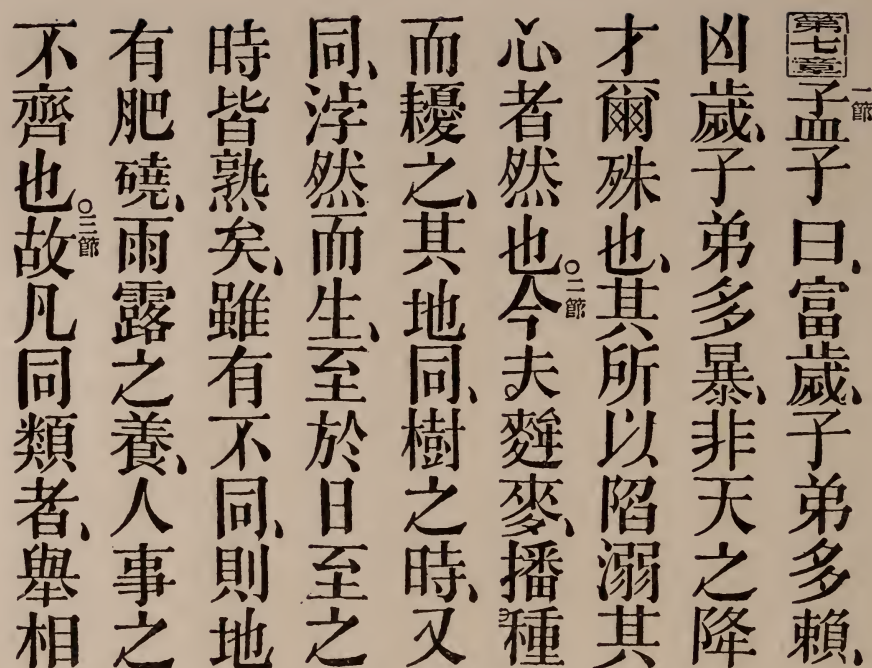 第七章一節孟子曰、富歲、子弟多賴、
凶歲、子弟多暴、非天之降
才爾殊也、其所以陷溺其
心者然也。二節今夫麰麥、播種
而耰之、其地同、樹之時、又
同、浡然而生、至於日至之
時、皆熟矣、雖有不同、則地
有肥磽、雨露之養、人事之
不齊也。三節故凡同類者、舉相